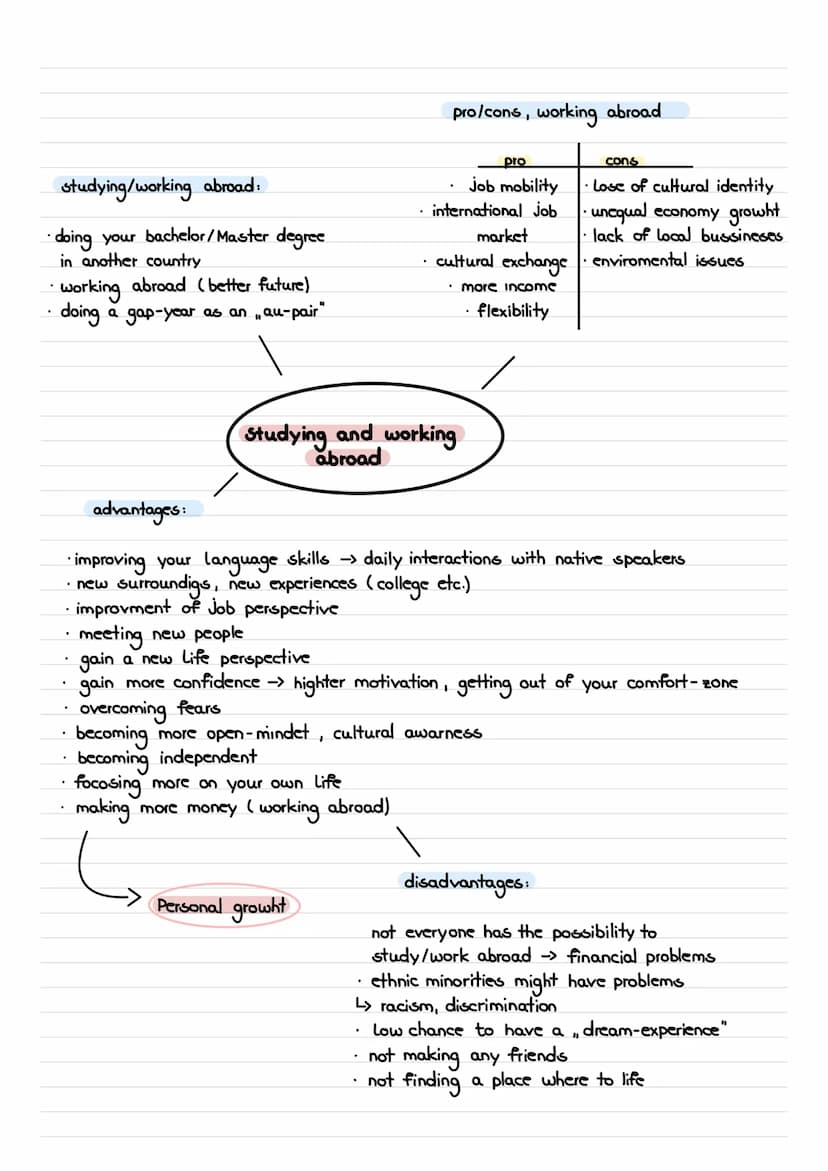 pro/cons, working abroad
pro
cons
studying/working abroad:
· doing your bachelor/Master degree
in another country
· working abroad (better future)
· doing a gap-year as an „au-pair"
· Job mobility
· international Job
market
· cultural exchange
· more income
· flexibility
· Lose of cultural identity
· unequal economy growht
· lack of local bussineses
· enviromental issues
studying and working
abroad
advantages:
· improving your language skills → daily interactions with native speakers
· new surroundigs, new experiences (college etc.)
· improvment of Job perspective
· meeting new people
· gain a new Life perspective
· gain more confidence → highter motivation, getting out of your comfort-zone
· overcoming fears
· becoming more open-mindet, cultural awarness
· becoming independent
· focosing more on your own Life
· making more money (working abroad)
Personal growht
disadvantages:
not everyone has the possibility to
study/work abroad → financial problems
· ethnic minorities might have problems
↳ racism, discrimination
· Low chance to have a „dream-experience"
· not making any friends
· not finding a place where to life